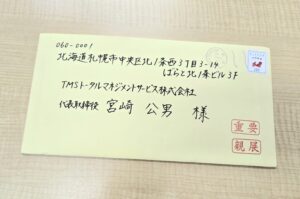 060-0001
北海道札幌市中央区北1条西3丁目3-14
ばらと北1条ビル3F
TMSトータルマネジメントサービス株式会社
代表取締役 宮崎 公男 様
重要
親展